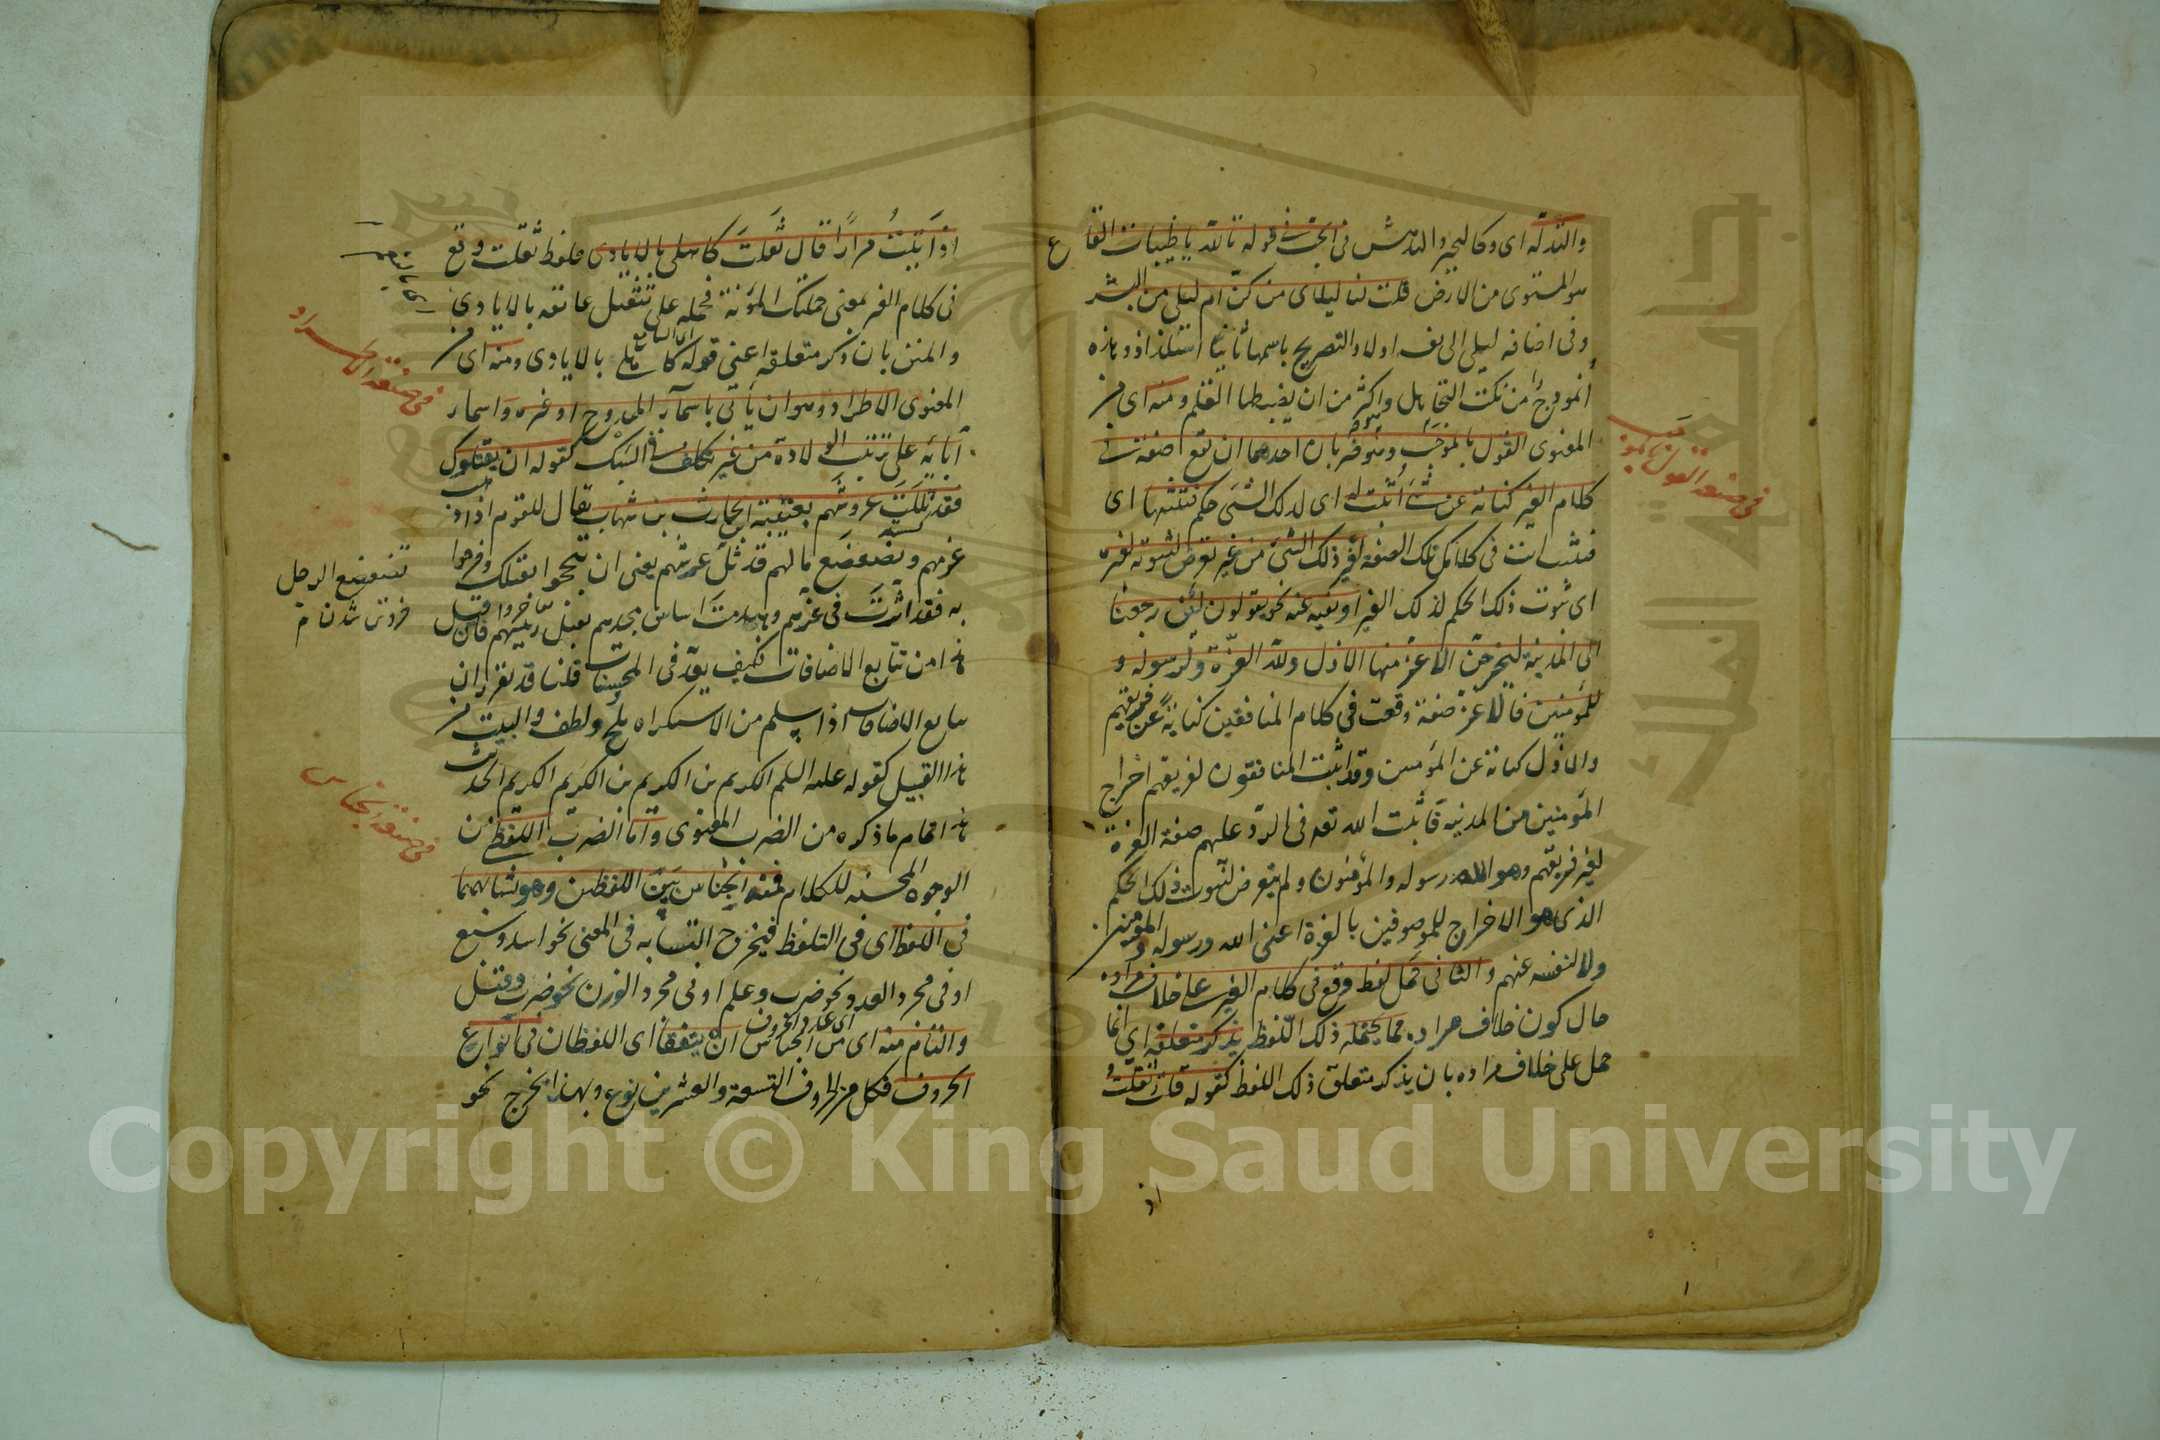 والتدله اى وكالتحير والتدهش فى الحب فى قوله تالله يا ظبيات القاع
هو المستوى من الارض قلن لنا ليلاى منكن ام ليلى من البشر
وفى اضافة ليلى الى نفسه اولا والتصريح باسمها ثانيا استلذاذ وهذه
انموذج من نكت التجاهل واكثر من ان يضبطها القلم ومنه اى من
المعنوى القول بالموجب وهو ضربان احدهما ان تقع صفة فى
كلام الغير كناية عن شئ اثبت له اى لذلك الشئ حكم فتثبتها اى
فتثبت انت فى كلامك تلك الصفة لغير ذلك الشئ من غير تعرض لثبوته لغيره
اى ثبوت ذلك الحكم لذلك الغير او نفيه عنه نحو يقولون لئن رجعنا
الى المدينة ليخرجن الاعز منها الاذل ولله العزة ولرسوله و
للمؤمنين فالاعز صفة وقعت فى كلام المنافقين كناية عن فريقهم
والاذل كناية عن المؤمنين وقد اثبت المنافقون لفريقهم اخراج
المؤمنين من المدينة فاثبت الله تعه فى الرد عليهم صفة العزة
لغير فريقهم وهو الله ورسوله والمؤمنون ولم يتعرض لثبوت ذلك الحكم
الذى هو الاخراج للموصوفين بالعزة اعنى الله ورسوله والمؤمنين
ولا لنفيه عنهم والثانى حمل لفظ وقع فى كلام الغير على خلاف مراده
حال كون خلاف مراده مما يحتمله ذلك اللفظ بذكر متعلقه اى انما
حمل على خلاف مراده بان يذكر متعلق ذلك اللفظ كقوله قلت ثقلت و
اذ
فى صنعة القول بالموجب
اذ اتيت مرارا قال ثقلت كاهلى بالايادى فلفظ ثقلت وقع
فى كلام الغير بمعنى حملتك المؤنة فحمله على تثقيل عاتقه بالايادى
والمنن بان ذكر متعلقه اعنى قوله كاهلى بالايادى ومنه اى من
المعنوى الاطراد وهو ان يأتى باسماء الممدوح او غيره واسماء
آبائه على ترتيب الولادة من غير تكلف فى السبك كقوله ان يقتلوك
فقد ثللت عروشهم بعتيبة بن الحارث بن شهاب يقال للقوم اذا ذهب
عزهم وتضعضع حالهم قد ثل عرشهم يعنى ان تبجحوا بقتلك وفرحوا
به فقد اثرت فى عزهم وهدمت اساس مجدهم بقتل رئيسهم فان قيل
هذا من تتابع الاضافات فكيف يعد فى المحسنات قلنا قد تقرر ان
تتابع الاضافات اذا سلم من الاستكراه ملح ولطف والبيت من
هذا القبيل كقوله عليه السلم الكريم بن الكريم بن الكريم الكريم الحديث
هذا تمام ما ذكره من الضرب المعنوى واما الضرب اللفظى من
الوجوه المحسنة للكلام فمنه الجناس بين اللفظين وهو تشابههما
فى اللفظ اى فى التلفظ فيخرج التشابه فى المعنى نحو اسد وسبع
او فى مجرد العدد نحو ضرب وعلم او فى مجرد الوزن نحو ضرب وقتل
والتام منه اى من الجناس ان يتفقا اى اللفظان فى انواع
الحروف فكل من الحروف التسعة والعشرين نوع وبهذا يخرج نحو
فى صنعة الاطراد
تضعضع الرجل
فروتن شدن م
فى صنعة الجناس
Copyright © King Saud University